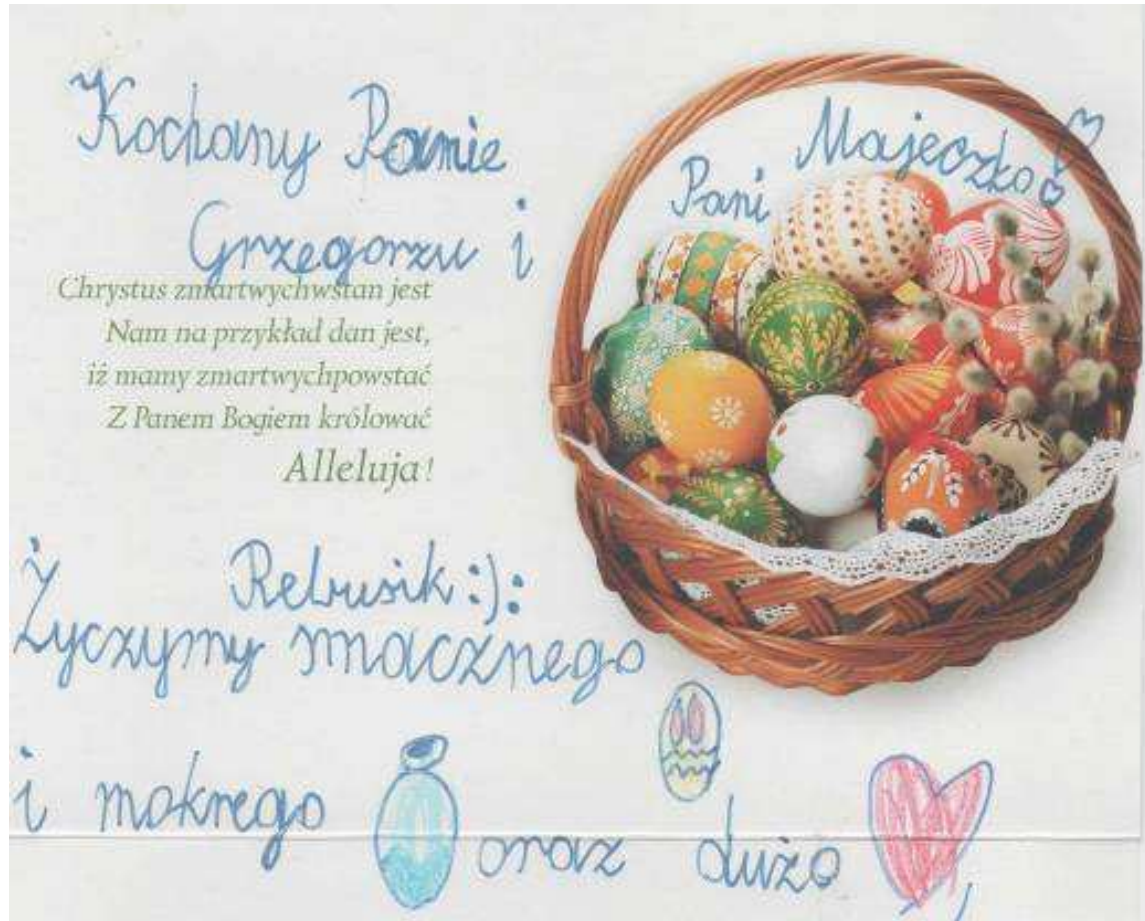 Kochany Panie
Grzegorzu i
Pani Majeczko
Chrystus zmartwychwstan jest
Nam na przykład dan jest,
iż mamy zmartwychpowstać
Z Panem Bogiem królować
Alleluja!
Rebusik :):
Życzymy smacznego
i mokrego oraz dużo